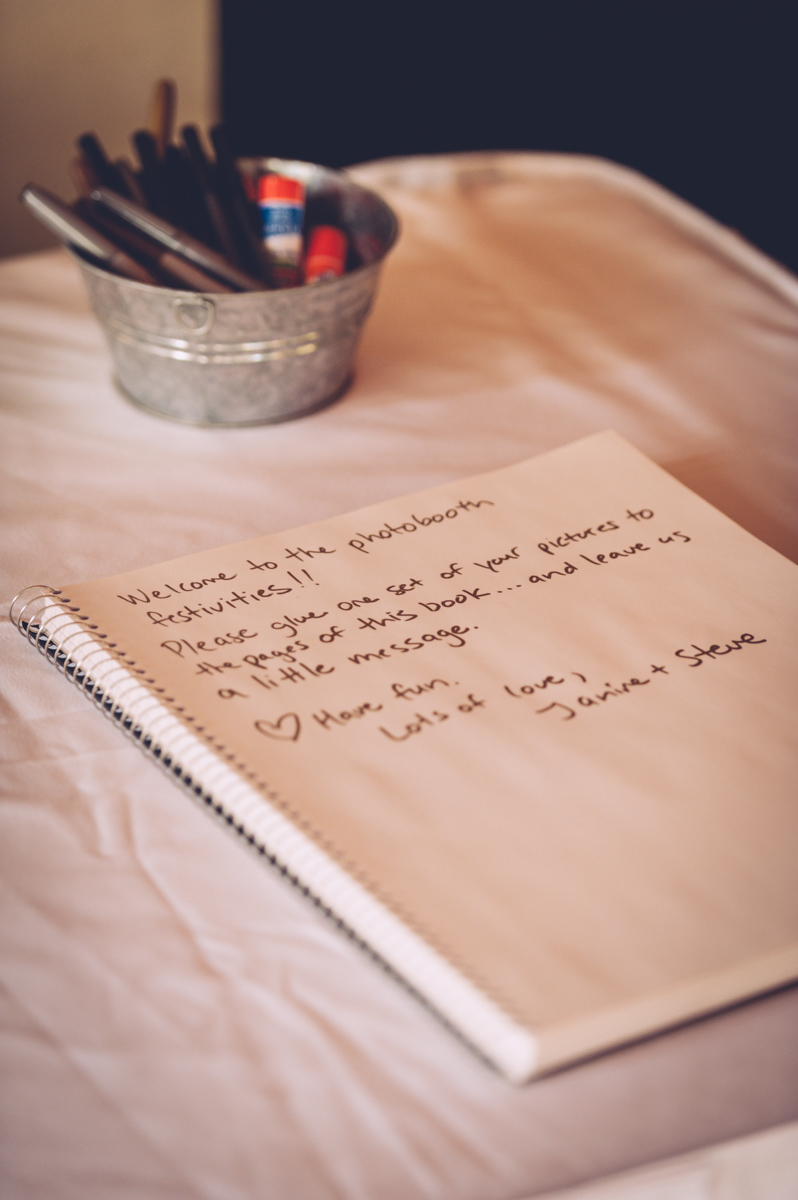 Welcome to the photobooth
festivities!!
Please glue one set of your pictures to
the pages of this book... and leave us
a little message.
♡ Have fun.
Lots of love,
Janine + Steve